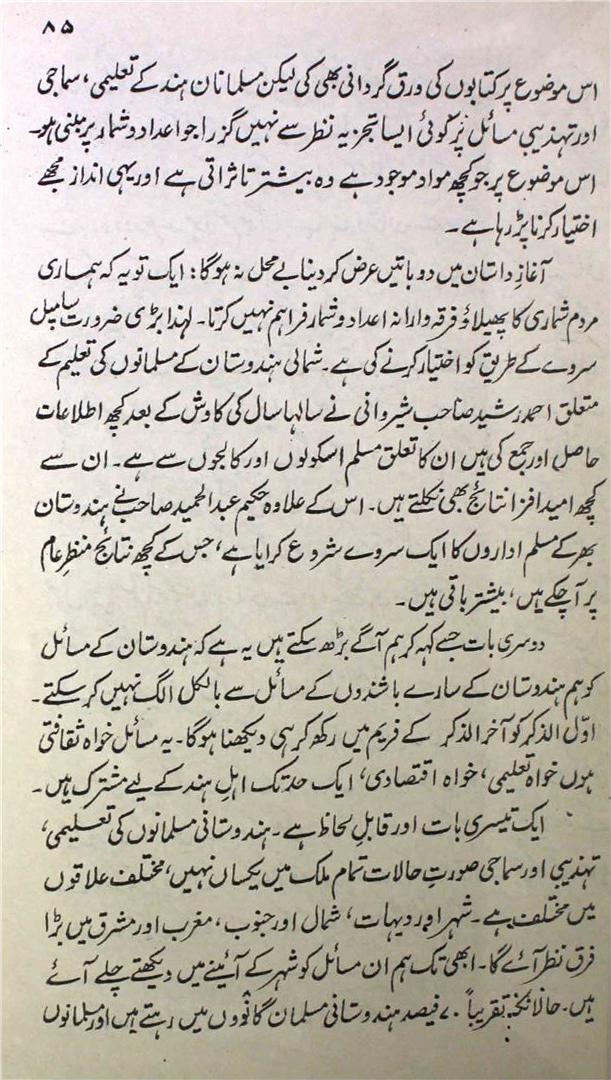 ۸۵
اس موضوع پر کتابوں کی ورق گردانی بھی کی لیکن مسلمانان ہند کے تعلیمی، سماجی
اور تہذیبی مسائل پر کوئی ایسا تجزیہ نظر سے نہیں گزرا جو اعداد و شمار پر مبنی ہو۔
اس موضوع پر جو کچھ مواد موجود ہے وہ بیشتر تاثراتی ہے اور یہی انداز مجھے
اختیار کرنا پڑ رہا ہے۔
آغازِ داستان میں دو باتیں عرض کر دینا بے محل نہ ہوگا: ایک تو یہ کہ ہماری
مردم شماری کا پھیلاؤ فرقہ وارانہ اعداد و شمار فراہم نہیں کرتا۔ لہٰذا بڑی ضرورت سیامپل
سروے کے طریق کو اختیار کرنے کی ہے۔ شمالی ہندوستان کے مسلمانوں کی تعلیم کے
متعلق احمد رشید صاحب شیروانی نے سالہا سال کی کاوش کے بعد کچھ اطلاعات
حاصل اور جمع کی ہیں ان کا تعلق مسلم اسکولوں اور کالجوں سے ہے۔ ان سے
کچھ امید افزا نتائج بھی نکلتے ہیں۔ اس کے علاوہ حکیم عبدالحمید صاحب نے ہندوستان
بھر کے مسلم اداروں کا ایک سروے شروع کرایا ہے، جس کے کچھ نتائج منظرِ عام
پر آچکے ہیں، بیشتر باقی ہیں۔
دوسری بات جسے کہہ کر ہم آگے بڑھ سکتے ہیں یہ ہے کہ ہندوستان کے مسائل
کو ہم ہندوستان کے سارے باشندوں کے مسائل سے بالکل الگ نہیں کر سکتے۔
اوّل الذکر کو آخر الذکر کے فریم میں رکھ کر ہی دیکھنا ہوگا۔ یہ مسائل خواہ ثقافتی
ہوں خواہ تعلیمی، خواہ اقتصادی، ایک حد تک اہلِ ہند کے لیے مشترک ہیں۔
ایک تیسری بات اور قابلِ لحاظ ہے۔ ہندوستانی مسلمانوں کی تعلیمی،
تہذیبی اور سماجی صورتِ حالات تمام ملک میں یکساں نہیں، مختلف علاقوں
میں مختلف ہے۔ شہر اور دیہات، شمال اور جنوب، مغرب اور مشرق میں بڑا
فرق نظر آئے گا۔ ابھی تک ہم ان مسائل کو شہر کے آئینے میں دیکھتے چلے آئے
ہیں۔ حالانکہ تقریباً ۷۰ فیصد ہندوستانی مسلمان گانووں میں رہتے ہیں اور مسلمانوں